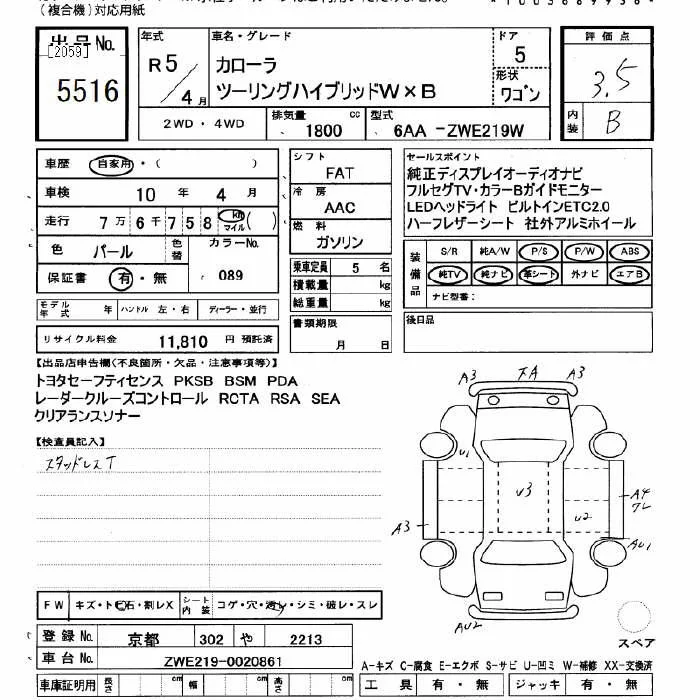 (複合機)対応用紙
出品No.
[2059]
5516
年式
R5/4月
車名・グレード
カローラ
ツーリングハイブリッドW×B
ドア
5
形状
ワゴン
評価点
3.5
内装
B
2WD・4WD
排気量
1800
cc
型式
6AA -ZWE219W
車歴
自家用・( )
車検
10年 4月
走行
7万6千758
km
マイル
( )
色
パール
色替
カラーNo.
089
保証書
有・無
モデル年式
年
ハンドル 左・右
ディーラー・並行
リサイクル料金
11,810 円 預託済
シフト
FAT
冷房
AAC
燃料
ガソリン
乗車定員 5 名
積載量 kg
総重量 kg
書類期限
月 日
セールスポイント
純正ディスプレイオーディオナビ
フルセグTV・カラーBガイドモニター
LEDヘッドライト ビルトインETC2.0
ハーフレザーシート 社外アルミホイール
装備品
S/R 純A/W P/S P/W ABS
純TV 純ナビ 革シート 外ナビ エアB
ナビ型番:
後日品
【出品店申告欄(不良箇所・欠品・注意事項等)】
トヨタセーフティセンス PKSB BSM PDA
レーダークルーズコントロール RCTA RSA SEA
クリアランスソナー
【検査員記入】
スタッドレスT
A3
FA
A3
U1
U3
U2
A4
ワレ
A3
AU1
AU2
スペア
FW
キズ・トビ石・割レX
シート内装
コゲ・穴・汚レ・シミ・破レ・スレ
登録No.
京都 302 や 2213
車台No.
ZWE219-0020861
車庫証明用
長さ cm
幅 cm
高さ cm
A-キズ C-腐食 E-エクボ S-サビ U-凹ミ W-補修 XX-交換済
工具 有・無
ジャッキ 有・無